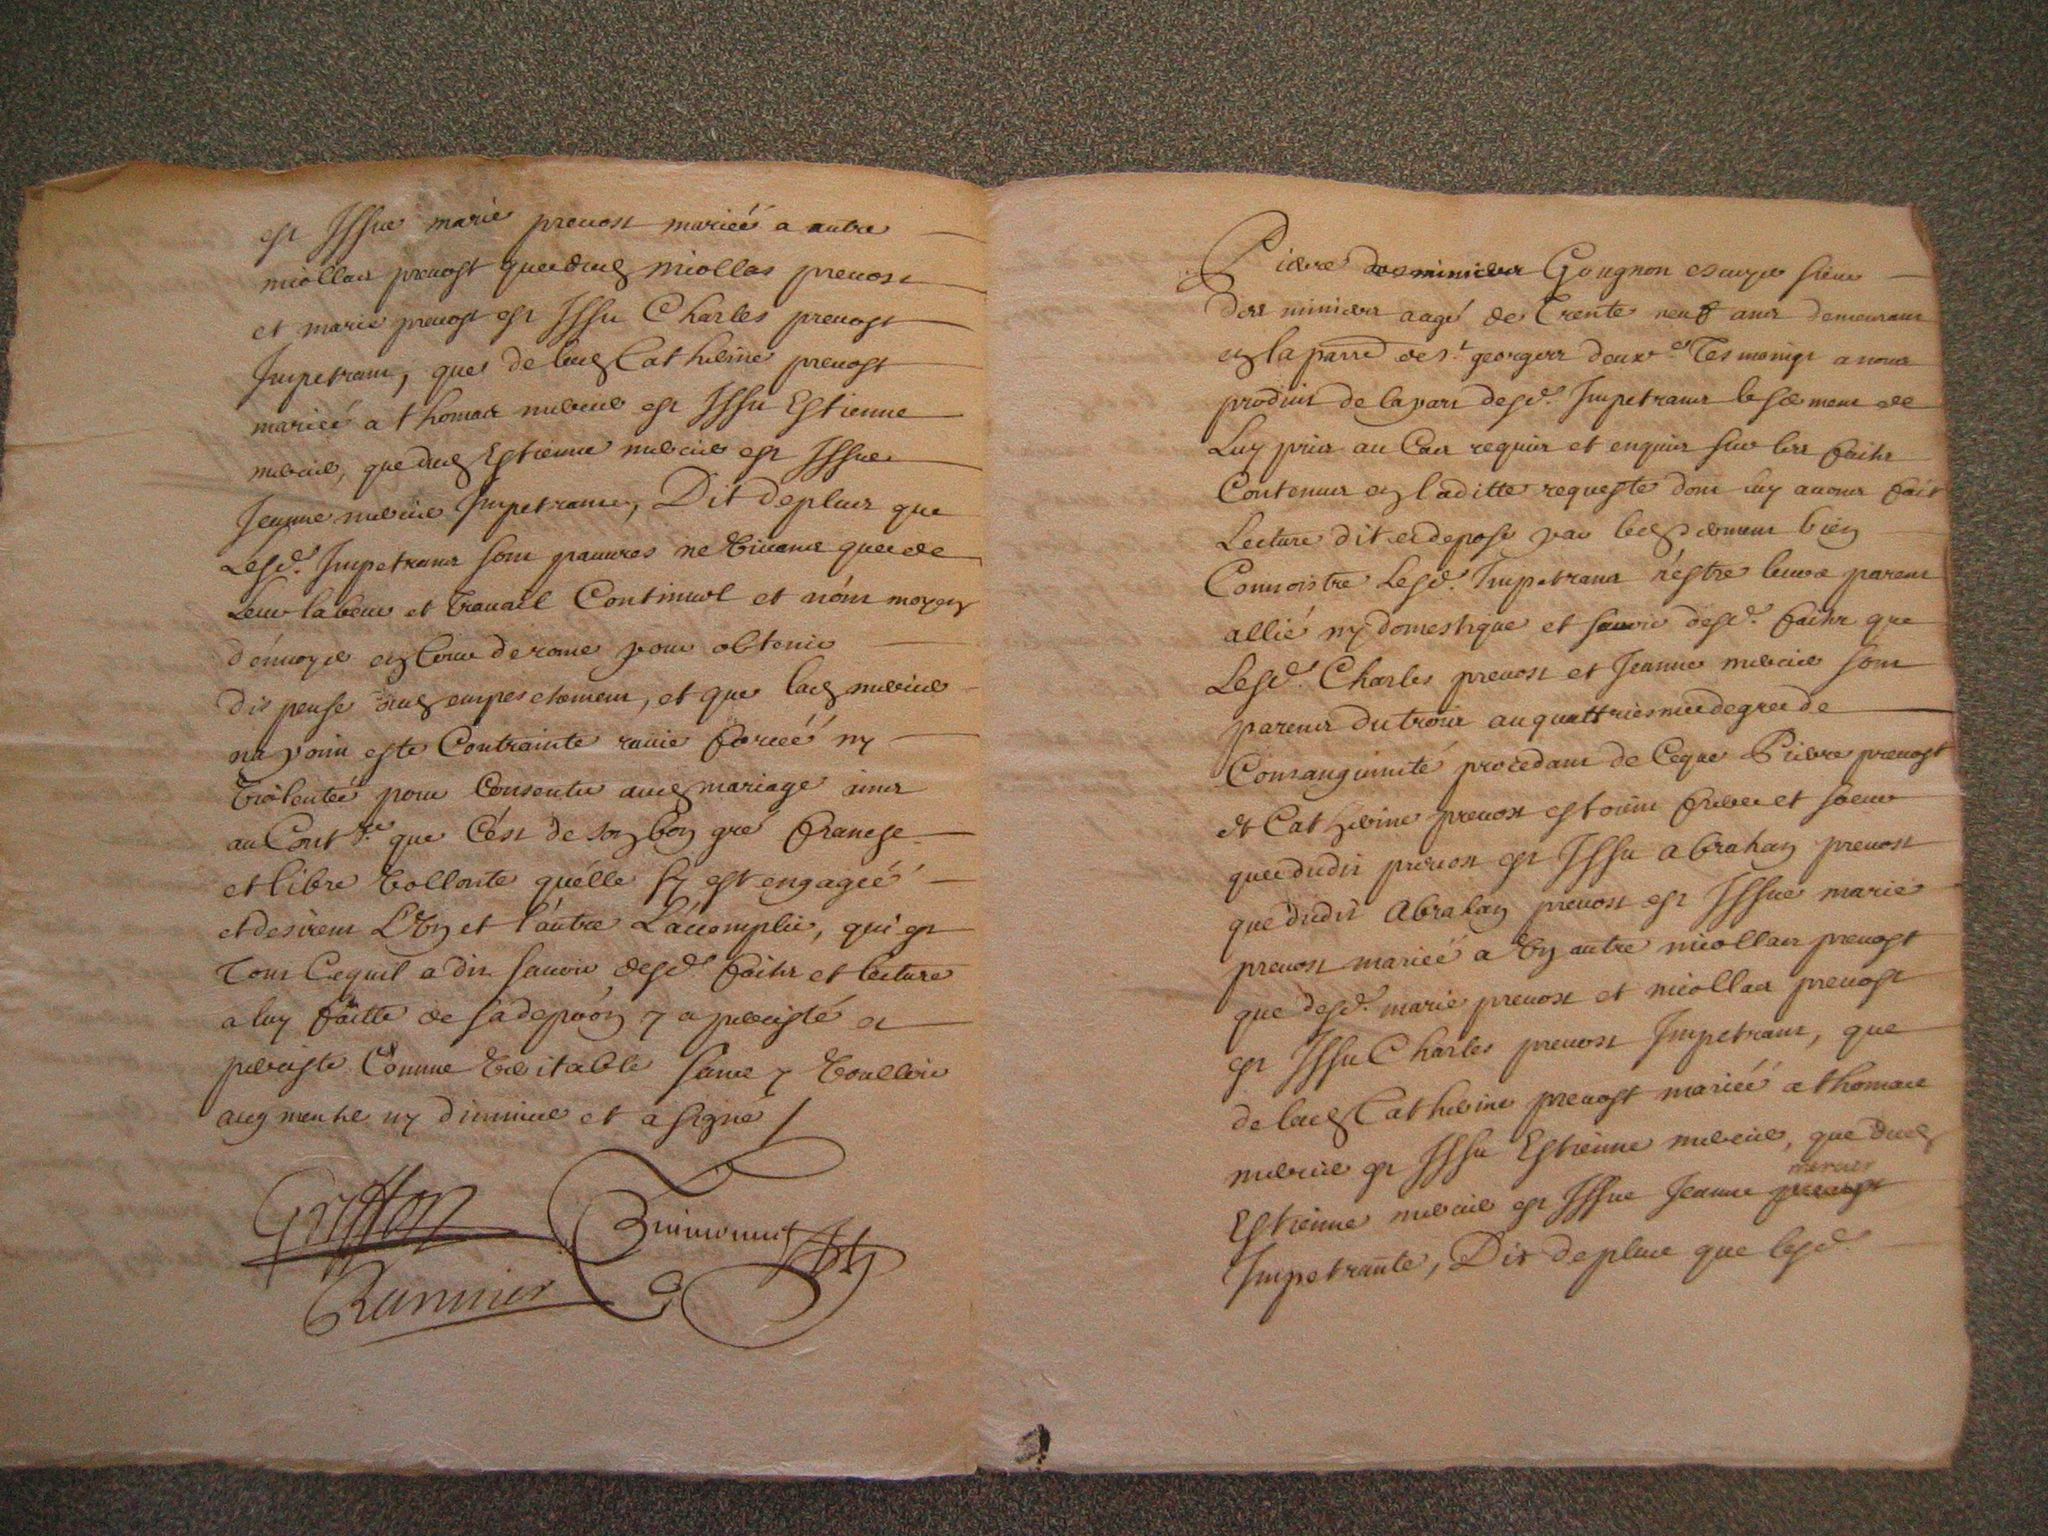 est Issue marie prevost mariéé a autre
nicollas prevost que dud nicollas prevost
et marie prevost est Issu Charles prevost
Impetrant, que de lad Catherine prevost
mariéé a thomas mercier est Issu Estienne
mercier, que dud Estienne mercier est Issue
Jeanne mercier Impetrante, Dit de plus que
Lesd. Impetrans sont pauvres ne vivans que de
Leur labeur et travail Continuel et nont moyen
d'envoyer en Cour de rome pour obtenir
dispense dud empeschement, et que lad mercier
na point esté Contrainte ravie forcéé ny
violentéé pour Consentir aud mariage ains
au Contre. que C'est de son bon gré franche
et libre vollonte quélle sy est engagéé
et desirent L'un et l'autre L'accomplir, qui est
Tout Cequil a dit savoir desd. faits et lecture
a luy faitte de sa depoõn y a persisté et
persiste Comme veritable sans y voulloir
augmenter ny diminuer et a signé
Griffon
Rannier
Pierre desminieres Gougnon escuyer sieur
des minieres aagé de Trente neuf ans demeurant
en la parre de st. georges deuxe. Tesmoingt a nous
produit de la part desd. Impetrans le serment de
Luy pris au Cas requis et enquis sur les faits
Contenus en laditte requeste dont luy avons fait
Lecture dit et depose par led serment bien
Connoistre Lesd. Impetrans n'estre leur parent
allié ny domestique et savoir desd. faits que
Lesd. Charles prevost et Jeanne mercier sont
parens du trois au quattriesme degre de
Consanguinité procedant de Ceque Pierre prevost
et Catherine prevost estoint frere et soeur
que dudit prevost est Issu abrahan prevost
que dudit Abrahan prevost est Issue marie
prevost mariéé a un autre nicollas prevost
que desd. marie prevost et nicollas prevost
est Issu Charles prevost Impetrant, que
de lad Catherine prevost mariéé a thomas
mercier est Issu Estienne mercier, que dud
mercier
Estienne mercier est Issue Jeanne prevost
Impetrante, Dit de plus que lesd.